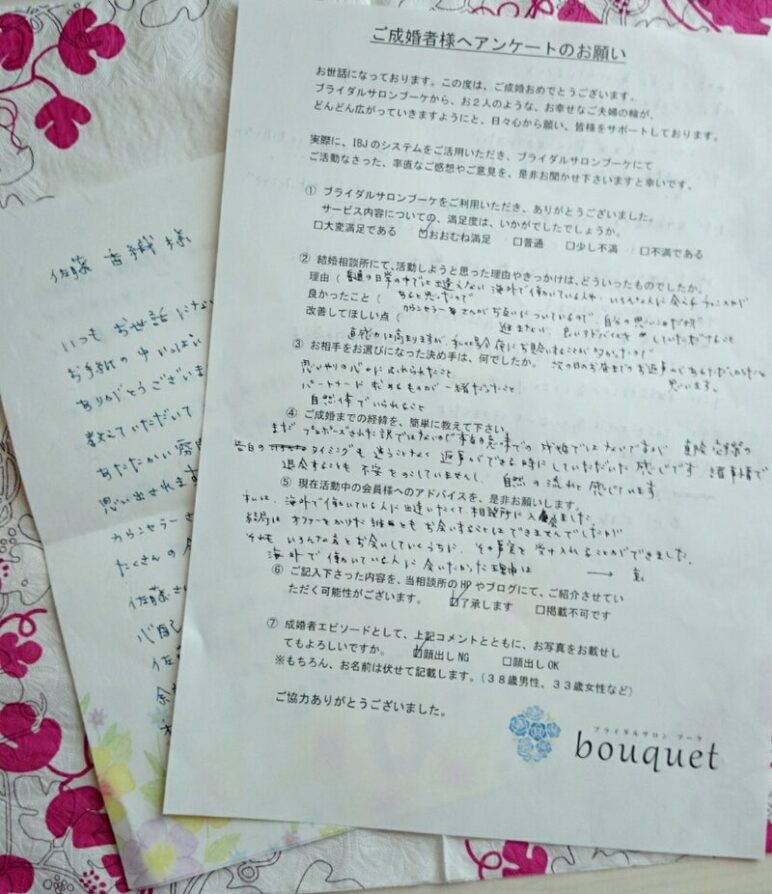 ご成婚者様へアンケートのお願い
お世話になっております。この度は、ご成婚おめでとうございます。
ブライダルサロンブーケから、お２人のような、お幸せなご夫婦の輪が、
どんどん広がっていきますようにと、日々心から願い、皆様をサポートしております。
実際に、IBJのシステムをご活用いただき、ブライダルサロンブーケにて
ご活動なさった、率直なご感想やご意見を、是非お聞かせ下さいますと幸いです。
① ブライダルサロンブーケをご利用いただき、ありがとうございました。
サービス内容についての、満足度は、いかがでしたでしょうか。
□大変満足である ☑おおむね満足 □普通 □少し不満 □不満である
② 結婚相談所にて、活動しようと思った理由やきっかけは、どういったものでしたか。
理由（普通の日常の中では出逢えない海外で働いている人や、いろんな人に会える
あると思ったので
良かったこと（カウンセラーさんがお互いについているので、自分の思いだけが
改善してほしい点（
③ お相手をお選びになった決め手は、何でしたか。
思いやりの心にふれられたこと
パートナーに求めるものが一緒だったこと
自然体でいられること
④ ご成婚までの経緯を、簡単に教えて下さい。
まだプロポーズされた訳ではないので本当の意味での成婚ではないですが、真剣交際の
告白のタイミングも迷うことなく返事ができる時にしていただいた感じです
退会することも不安をのこしていませんし、自然の流れと感じています
⑤ 現在活動中の会員様へのアドバイスを、是非お願いします。
私は、海外で働いている人に出逢いたくて相談所に入会しました
結局はオファーをかけた誰ともお会いすることはできませんでしたが
それも いろんな方とお会いしていくうちに、その事実を受け入れることができました。
海外で働いている人に会いたかった理由は → 裏
⑥ ご記入下さった内容を、当相談所のHPやブログにて、ご紹介させてい
ただく可能性がございます。 ☑了承します □掲載不可です
⑦ 成婚者エピソードとして、上記コメントとともに、お写真をお載せし
てもよろしいですか。 ☑顔出しNG □顔出しOK
※もちろん、お名前は伏せて記載します。（３８歳男性、３３歳女性など）
ご協力ありがとうございました。
ブライダルサロン ブーケ
bouquet
佐藤 香織 様
いつも お世話にな
お手紙の中 いっぱい
ありがとうございま
教えていただいて
あたたかい
思い出されます
カウンセラーさ
たくさんの
佐藤さ
心配
佐